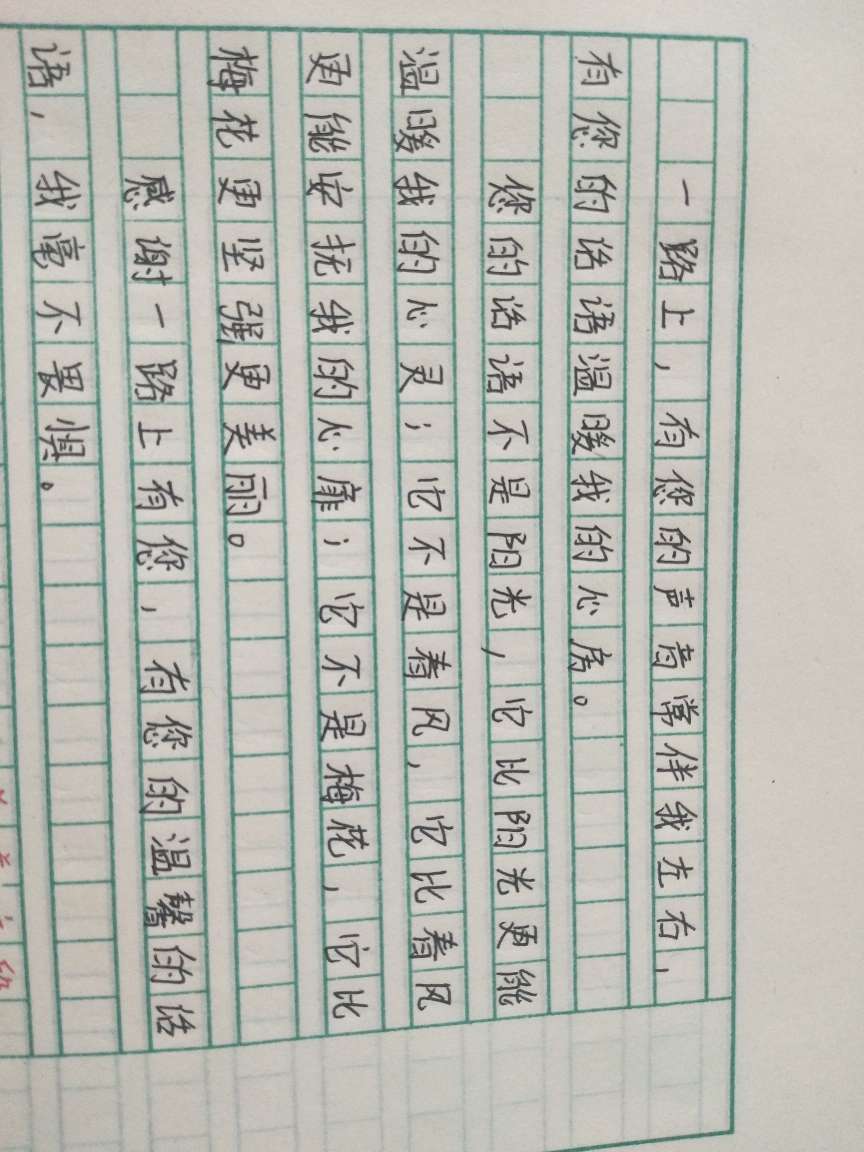 一路上，有您的声音常伴我左右，
有您的话语温暖我的心房。
您的话语不是阳光，它比阳光更能
温暖我的心灵；它不是春风，它比春风
更能安抚我的心扉；它不是梅花，它比
梅花更坚强更美丽。
感谢一路上有您，有您的温馨的话
语，我毫不畏惧。